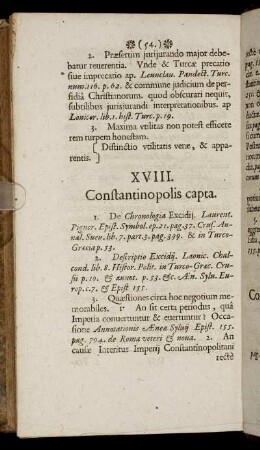 (54.)
2. Præsertim jurijurando major debe-
batur reuerentia. Vnde & Turcæ precatio
siue imprecatio ap. Leunclau. Pandect. Turc.
num. 116. p. 62. & commune judicium de per-
fidiâ Christianorum. quod obscurari nequit,
subtilibus jurisjurandi interpretationibus. ap
Lonicer. lib. 1. hist. Turc. p. 19.
3. Maxima vtilitas non potest efficere
rem turpem honestam.
[Distinctio vtilitatis veræ, & appa-
rentis.]
XVIII.
Constantinopolis capta.
1. De Chronologia Excidij. Laurent.
Pignor. Epist. Symbol. ep. 21. pag. 37. Crus. An-
nal. Suev. lib. 7. part. 3. pag. 399. & in Turco-
Græcia p. 53.
2. Descriptio Excidij. Laonic. Chal-
cond. lib. 8. Histor. Polit. in Turco-Græc. Cru-
sii p. 10. & annot. p. 53. &c. Æn. Sylv. Eu-
rop. c. 7. & Epist 155.
3. Quæstiones circa hoc negotium me-
morabiles. 1. An sit certa periodus, quâ
Impetia conuertuntur & euertuntur? Occa-
sione Annotationis Æneæ Sylvij Epist. 155.
pag. 794. de Roma veteri & noua. 2. An
causæ Interitus Imperij Constantinopolitani
rectè